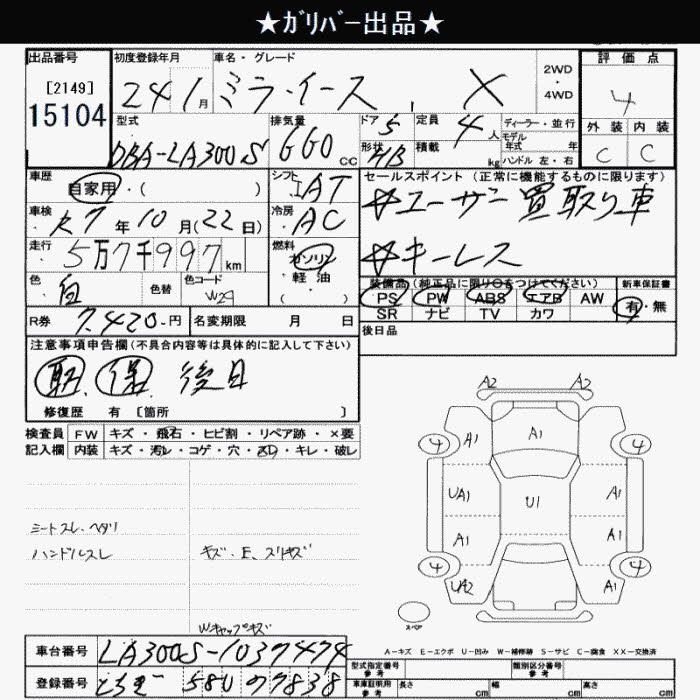 ★ガリバー出品★
出品番号 初度登録年月 車名・グレード 2WD・4WD 評価点
[2149] 15104 24 1月 ミラ・イース X 4
型式 排気量 ドア 5 定員 4人 ディーラー・並行 外装 内装
DBA-LA300S 660 CC 形状 HB 積載 kg モデル年式 年式 ハンドル 左・右 C C
車歴 シフト セールスポイント (正常に機能するものに限ります)
自家用・( ) IAT ☆ユーザー買取り車
車検 R7年10月(22日) 冷房 AC
走行 5万7千997km 燃料 ガソリン 軽油 ( ) ☆キーレス
色 白 色替 色コード W29 装備品(純正品に限り○をつけてください) 新車保証書
PS PW ABS エアB AW 有・無
SR ナビ TV カワ
R券 7,420円 名変期限 月 日 後日品
注意事項申告欄(不具合内容等は具体的に記入して下さい)
取 保 後日
修復歴 有 [箇所 ]
検査員 FW キズ・飛石・ヒビ割・リペア跡・×要
記入欄 内装 キズ・汚レ・コゲ・穴・スレ・キレ・破レ
シートスレ・ヘタリ
ハンドルスレ キズ、E、スリキズ
Wキャップキズ
A2 A2
4 A1 A1 A1 4
UA1 U1 A1
A1 A1
4 UA2 A1 4
スペア
A-キズ E-エクボ U-凹み W-補修跡 S-サビ C-腐食 XX-交換済
車台番号 LA300S-1037474 型式指定番号 参考 類別区分番号 参考
登録番号 とちぎ 580 77838 車庫証明用 参考 長さ cm 幅 cm 高さ cm